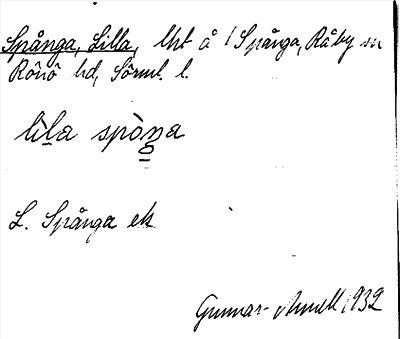 Spånga, Lilla, lht å 1 Spånga, Råby sn
Rönö hd, Sörml. l.
lìl̠a spòŋ̠a
L. Spånga ek
Gunnar Amell 1932